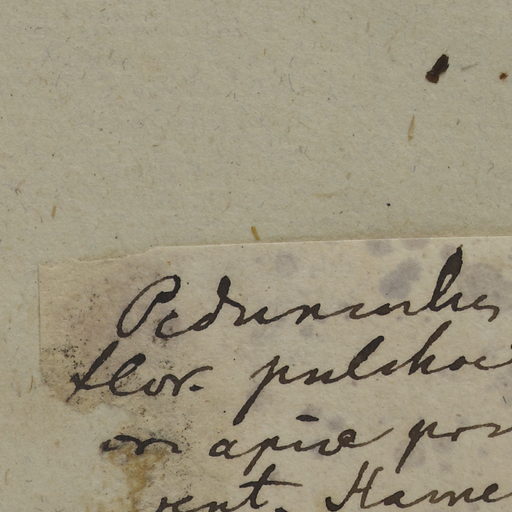 Pedunculus
flor. pulchoe
on apice por
rent. Hame